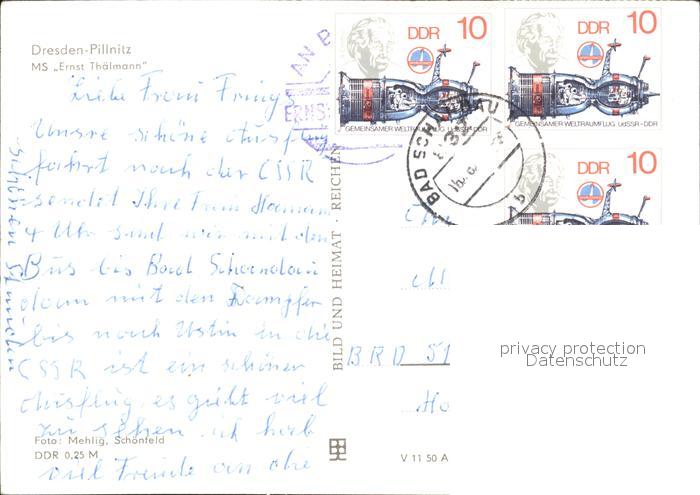 Dresden-Pillnitz
MS „Ernst Thälmann"
Liebe Frau Frings
Unsre schöne Ausflug
fahrt nach der CSSR
sendet Ihre Frau
4 Uhr sind wir mit dem
Bus bis Bad Schandau
dann mit den Dampfer
bis nach Ustin in die
CSSR ist ein schöner
Ausflug es giebt viel
zu sehen ich hab
viel Freude an die
schönen
Foto: Mehlig, Schönfeld
DDR 0,25 M
AN B
ERNS
BILD UND HEIMAT · REICHEN
V 11 50 A
DDR 10
GEMEINSAMER WELTRAUMFLUG UdSSR-DDR
DDR 10
GEMEINSAMER WELTRAUMFLUG UdSSR-DDR
DDR 10
BAD SCH AU
BRD 51
Ho
privacy protection
Datenschutz